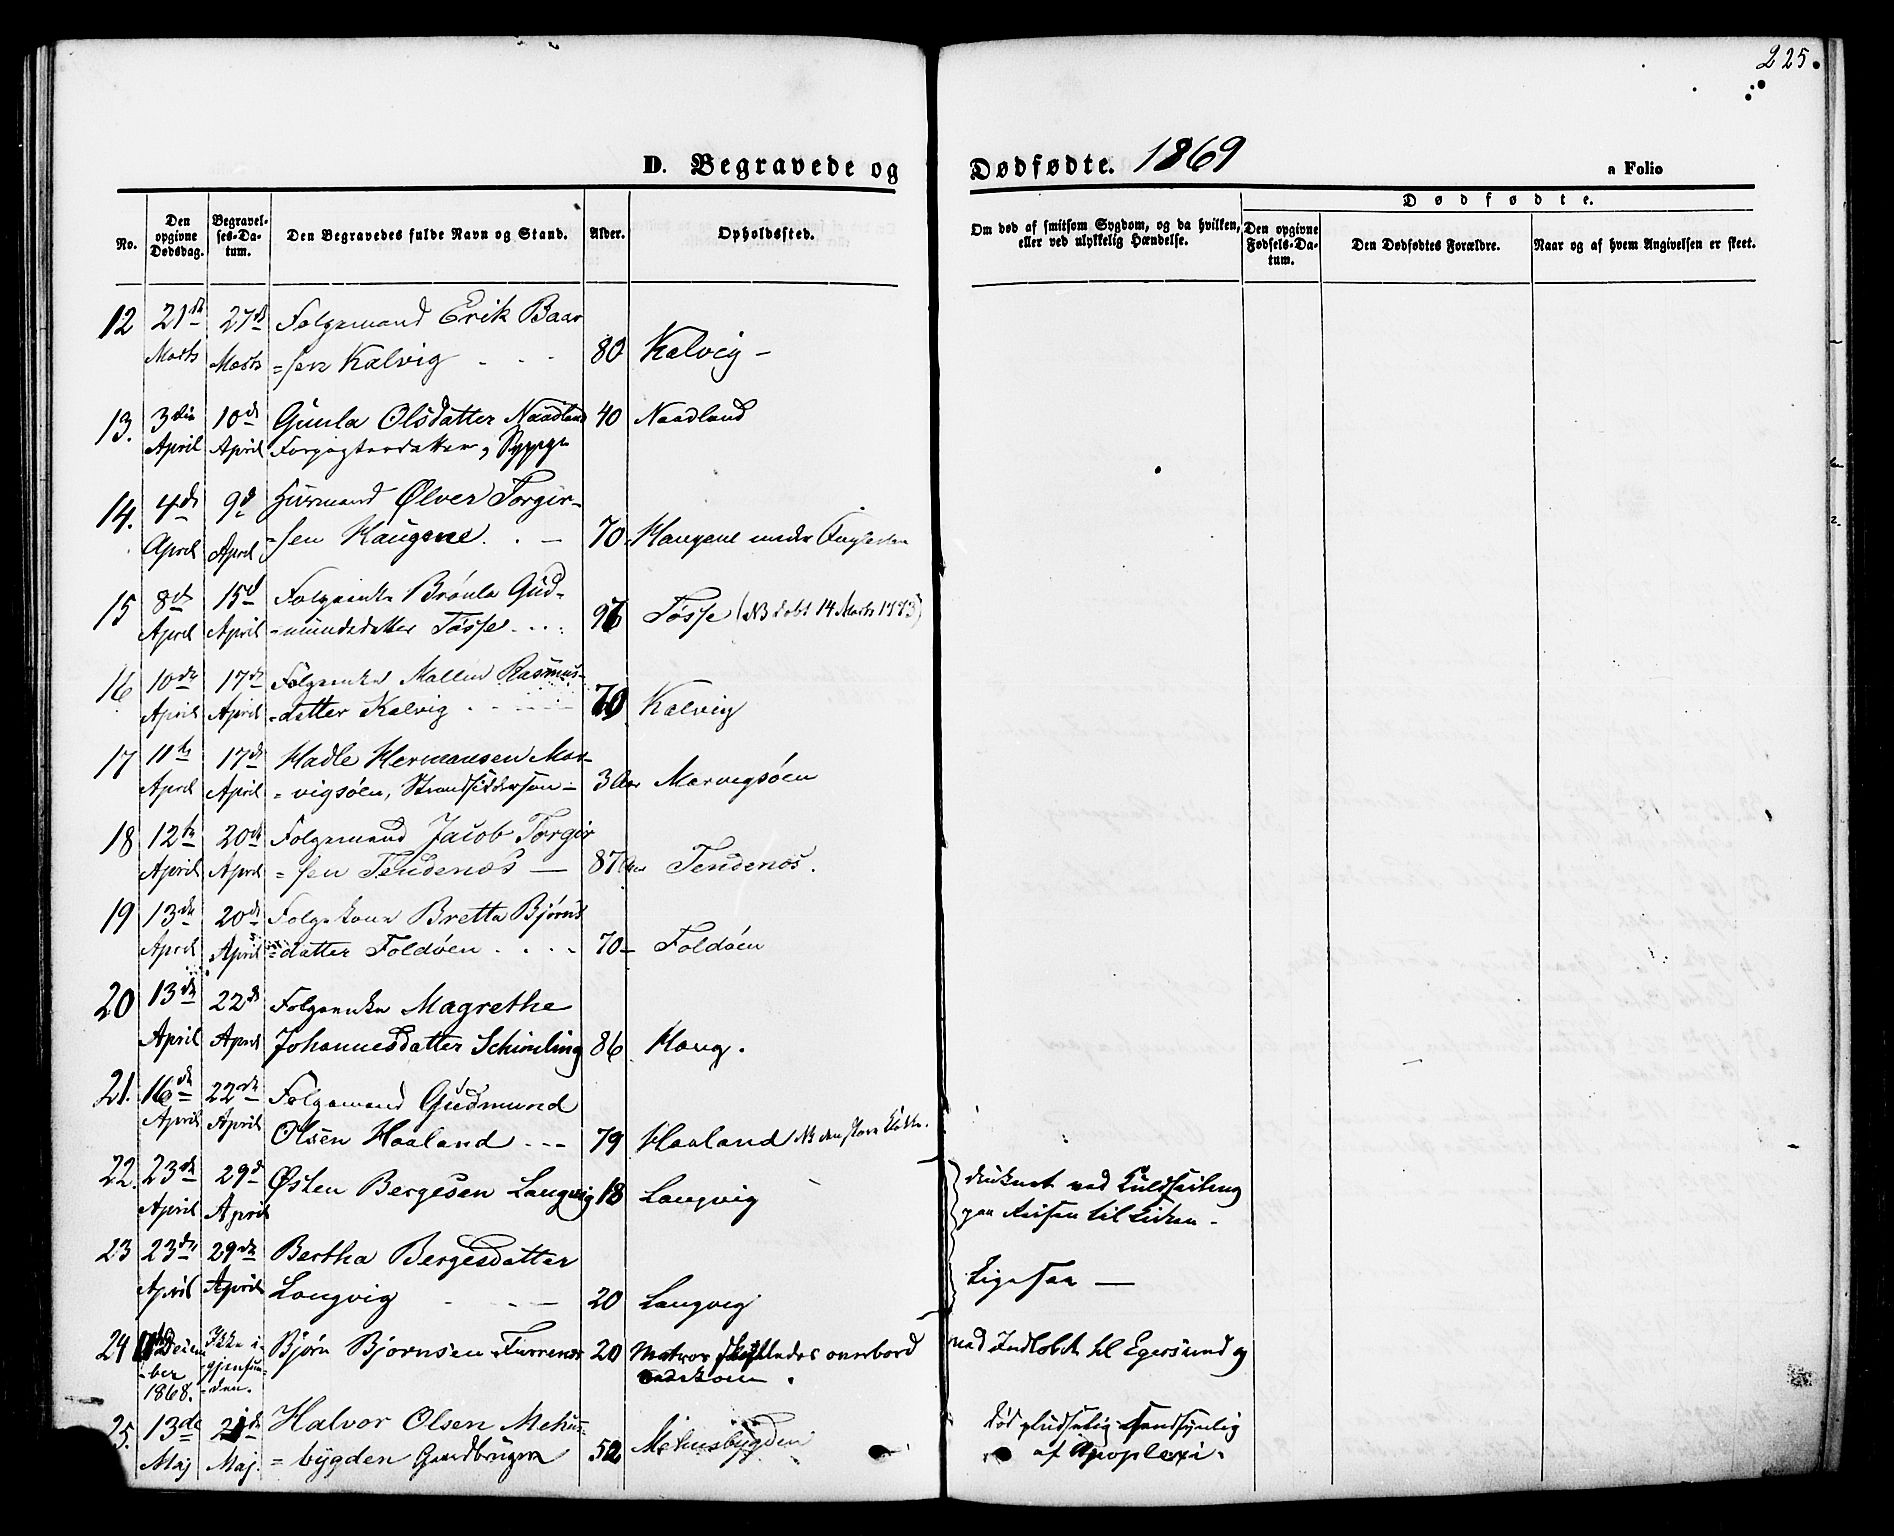 225.
D. Begravede og Dødfødte. 1869
a Folio
No.
Den opgivne Dødsdag.
Begravelses-Datum.
Den Begravedes fulde Navn og Stand.
Alder.
Opholdssted.
Om død af smitsom Sygdom, og da hvilken, eller ved ulykkelig Hændelse.
Dødfødte.
Den opgivne Fødsels-Datum.
Den Dødfødtes Forældre.
Naar og af hvem Angivelsen er skeet.
12 21de 27de Folgemand Erik Baar
Marts Marts =sen Kalvig - - - 80 Kalvig -
13. 3die 10de Gunla Olsdatter Naadland 40 Naadland
April April
14. 4de 9de Huusmand Ølver Torgir-
April April =sen Haugene. . - 70 Haugene under
15 8de 15de Brónla Gud-
April April =mundsdatter Tøsse - . . : 96 Tøsse (NB døbt 14 Marts 1773)
16 10de 17de Folgeenke Mallin Rasmus-
April April =datter Kalvig - - - - 70 Kalvig
17 11te 17de Hadle Hermansen Mar-
April April =vigsøen, Strandsiddersøn - 3 Aar Marvigsøen
18 12te 20de Folgemand Jacob Torgir
April April =sen Tendenæs - 87 Aar Tendenæs.
19 13de 20de Folgekone Bretta Bjørns
April April =datter Foldøen . . . . 70 - Foldøen
20 13de 22de Folgeenke Magrethe
April April Johannesdatter Schimling 86 Haug.
21. 16de 22de Folgemand Gudmund
April April Olsen Haaland - - - 79 Haaland NB den store Klokke.
22. 23de 29de Østen Bergesen Langvig 18 Langvig druknet ved Kuldseiling
April April paa Reisen til Kirken -
23 23de 29de Bertha Bergesdatter
April April Langvig - - - 20 Langvig Ligesaa -
24 Decem Ikke i- Bjørn Bjørnsen Furrenæs 20 Matros skylledes overbord ved Indløbet til Egersund og
=ber gjenfun-
1868. =den.
25. 13de 21de Halvor Olsen Mehus- død pludselig sandsynlig
Maj Maj. =bygden Gaardbruger 52 Mehusbygden af Apoplexi.